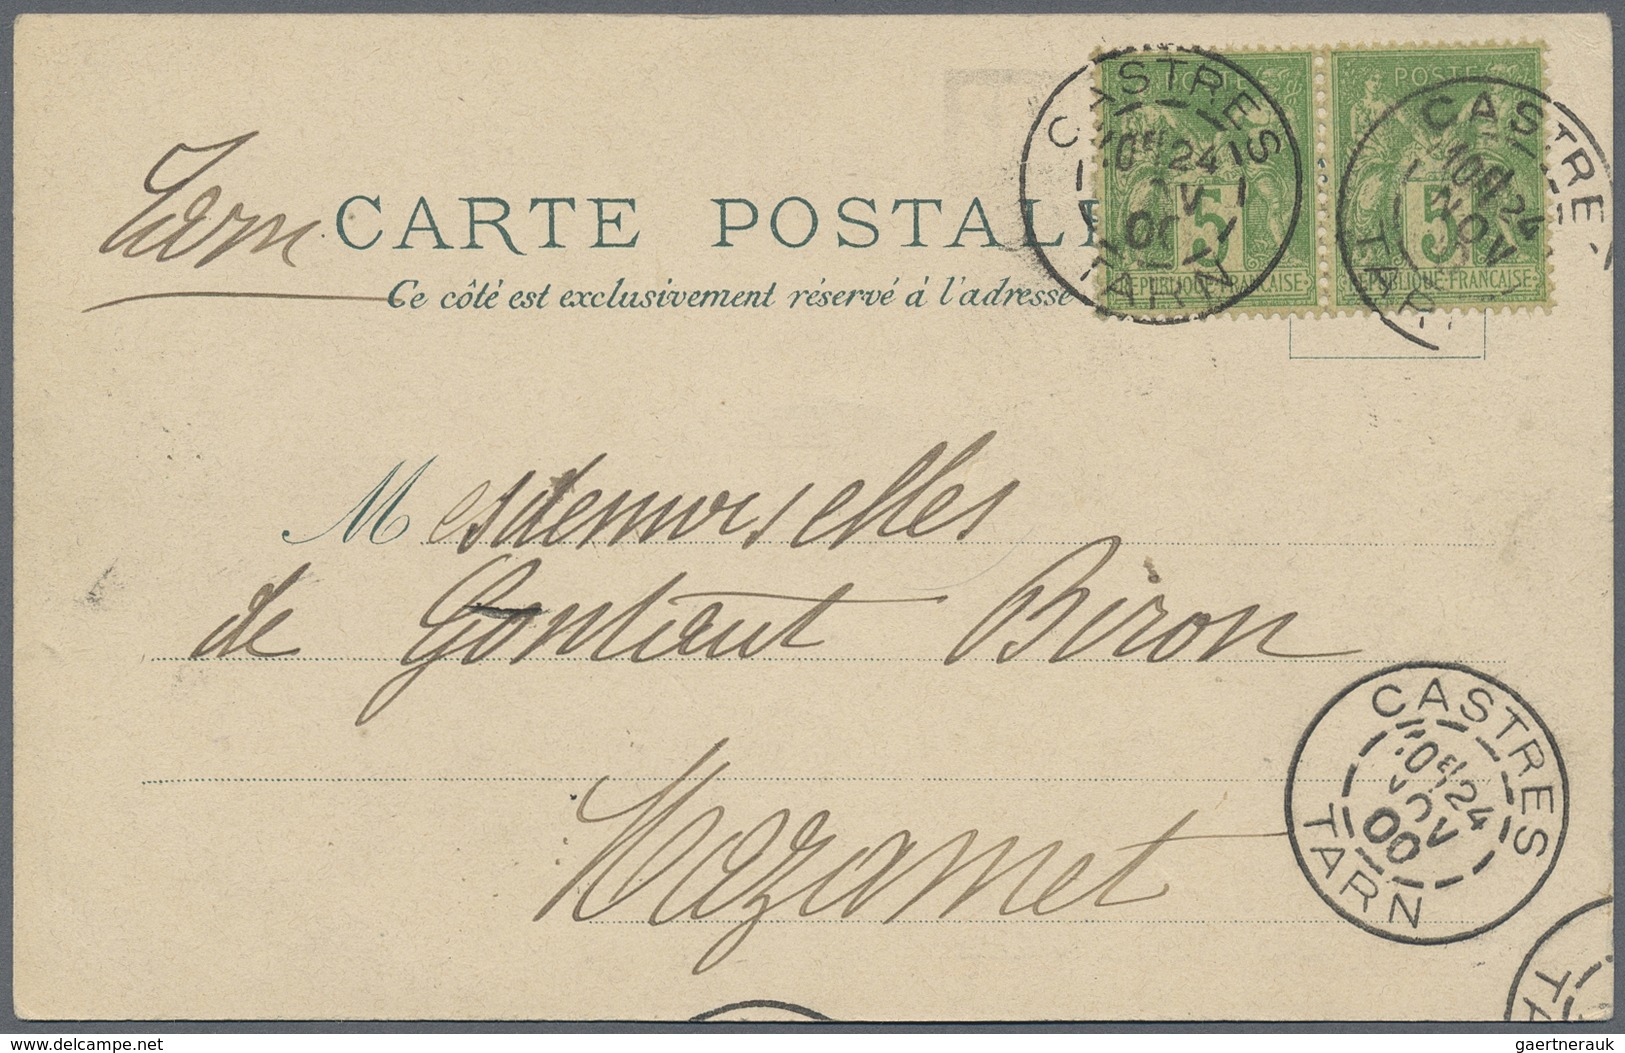 CARTE POSTALE
Ce côté est exclusivement réservé à l'adresse
Tarn
POSTE
5
REPUBLIQUE FRANCAISE
POSTE
5
REPUBLIQUE FRANCAISE
CASTRES
24
00
TARN
CASTRES
10E 24
NOV
TAR
Mesdemoiselles
de Gontaut Biron
Mazamet
CASTRES
10E 24
NOV
00
TARN
TA
delcampe.net
gaertnerauk